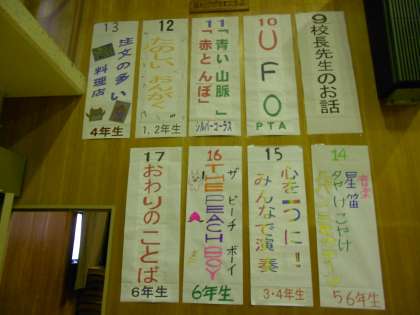 9 校長先生のお話
10
UFO
PTA
11
「青い山脈」
「赤とんぼ」
シルバーコーラス
12
たのしい おんがく
1,2年生
13
注文の多い
料理店
4年生
14
星笛
夕やけこやけ
5 6年生
15
心を一つに!
みんなで演奏
3・4年生
16
ザ ピーチ ボーイ
THE PEACH BOY
6年生
17
おわりのことば
6年生